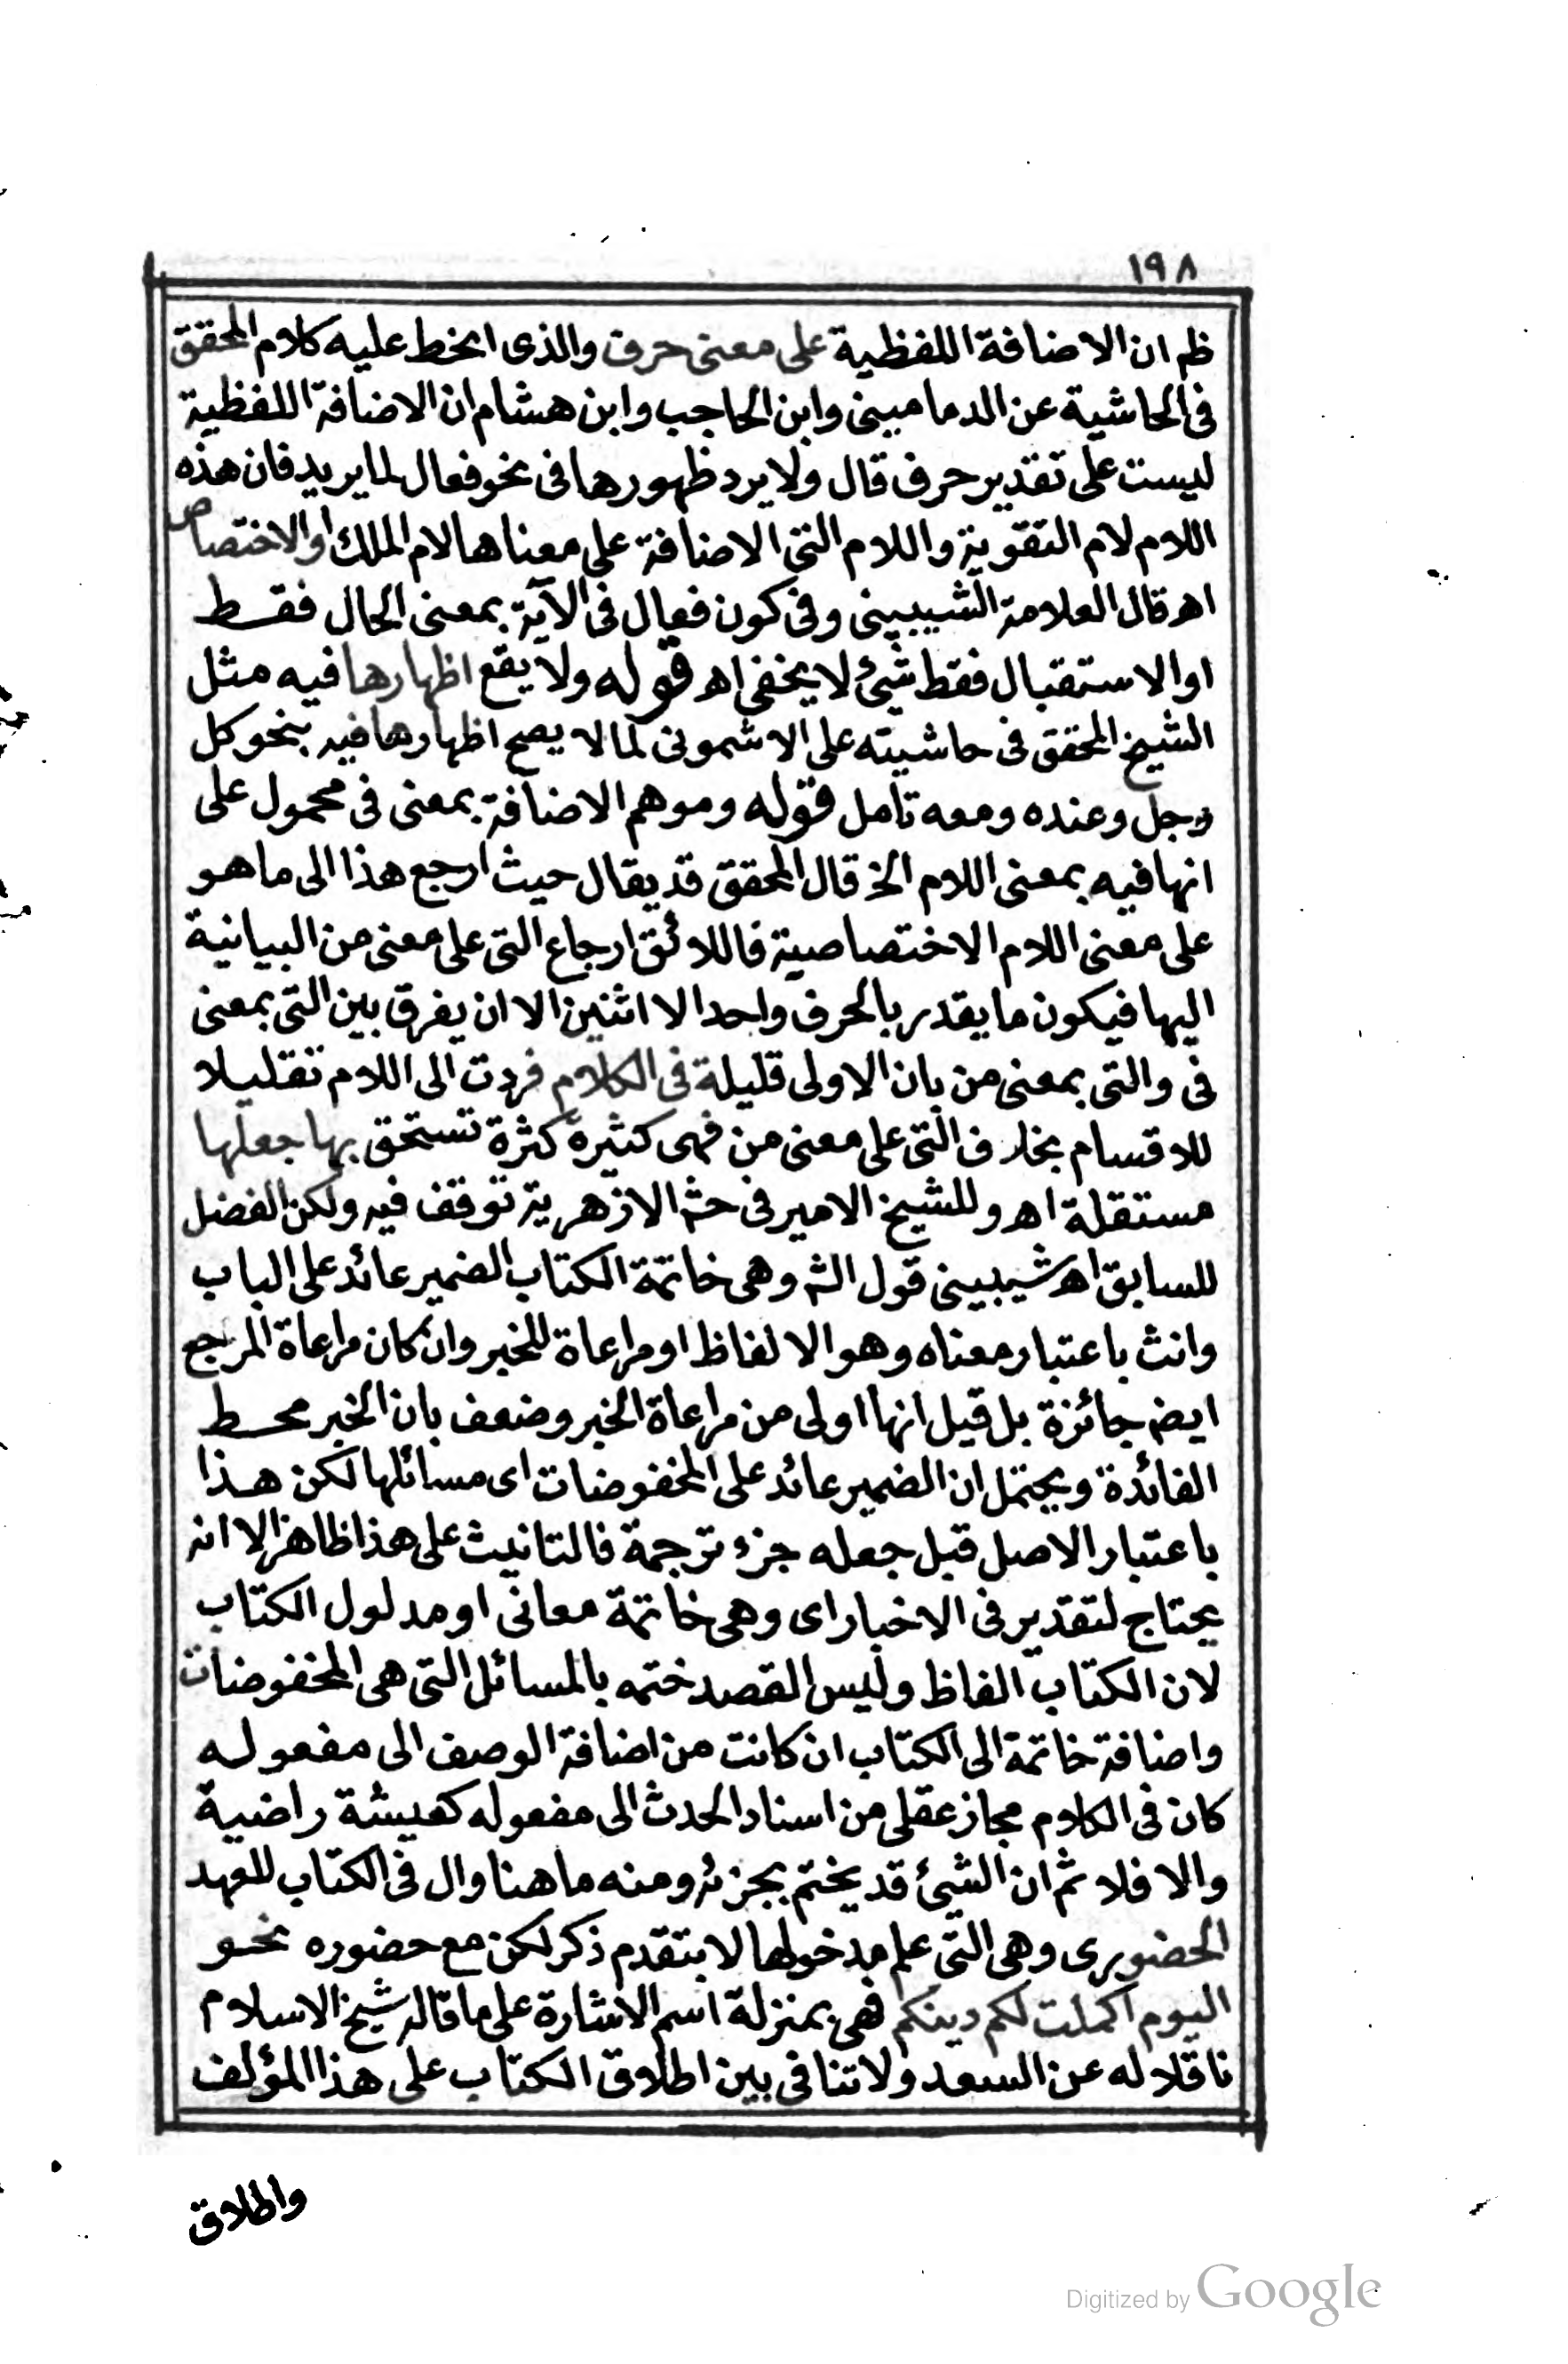 ١٩٨
ظم ان الاضافة اللفظية على معنى حرف والذى انحط عليه كلام المحقق
فى الحاشية عن الدمامينى وابن الحاجب وابن هشام ان الاضافة اللفظية
ليست على تقدير حرف قال ولا يرد ظهورها فى نحو فعال لما يريد فان هذه
اللام لام التقوية واللام التى الاضافة على معناها لام الملك او الاختصاص
اهـ قال العلامة الشيبينى وفى كون فعال فى الآية بمعنى الحال فقط
او الاستقبال فقط شئ لا يخفى اهـ قوله ولا يقع اظهارها فيه مثل
الشيخ المحقق فى حاشيته على الاشمونى لما لا يصح اظهارها فيه بنحو كل
وجل وعنده ومعه تأمل قوله وموهم الاضافة بمعنى فى محمول على
انها فيه بمعنى اللام الخ قال المحقق قد يقال حيث ارجع هذا الى ما هو
على معنى اللام الاختصاصية فاللائق ارجاع التى على معنى من البيانية
اليها فيكون ما يقدر بالحرف واحدا لا اثنين الا ان يفرق بين التى بمعنى
فى والتى بمعنى من بان الاولى قليلة فى الكلام فردت الى اللام تقليلا
للاقسام بخلاف التى على معنى من فهى كثيرة كثرة تستحق بها جعلها
مستقلة اهـ وللشيخ الامير فى حش الازهرية توقف فيه ولكن الفضل
للسابق اهـ شيبينى قول الش وهى خاتمة الكتاب الضمير عائد على الباب
وانث باعتبار معناه وهو الالفاظ او مراعاة للخبر وان كان مراعاة المرجع
ايضا جائزة بل قيل انها اولى من مراعاة الخبر وضعف بان الخبر محط
الفائدة ويحتمل ان الضمير عائد على المخفوضات اى مسائلها لكن هذا
باعتبار الاصل قبل جعله جزء ترجمة فالتانيث على هذا ظاهر الا انه
يحتاج لتقدير فى الاخبار اى وهى خاتمة معانى او مدلول الكتاب
لان الكتاب الفاظ وليس القصد ختمه بالمسائل التى هى المخفوضات
واضافة خاتمة الى الكتاب ان كانت من اضافة الوصف الى مفعوله
كان فى الكلام مجاز عقلى من اسناد الحدث الى مفعوله كعيشة راضية
والا فلا ثم ان الشئ قد يختم بجزئه ومنه ما هنا وال فى الكتاب للعهد
الحضورى وهى التى علم مدخولها لا بتقدم ذكر لكن مع حضوره نحو
اليوم اكملت لكم دينكم فهى بمنزلة اسم الاشارة على ما قاله شيخ الاسلام
ناقلا له عن السعد ولا تنافى بين اطلاق الكتاب على هذا المؤلف
واطلاق
Digitized by Google